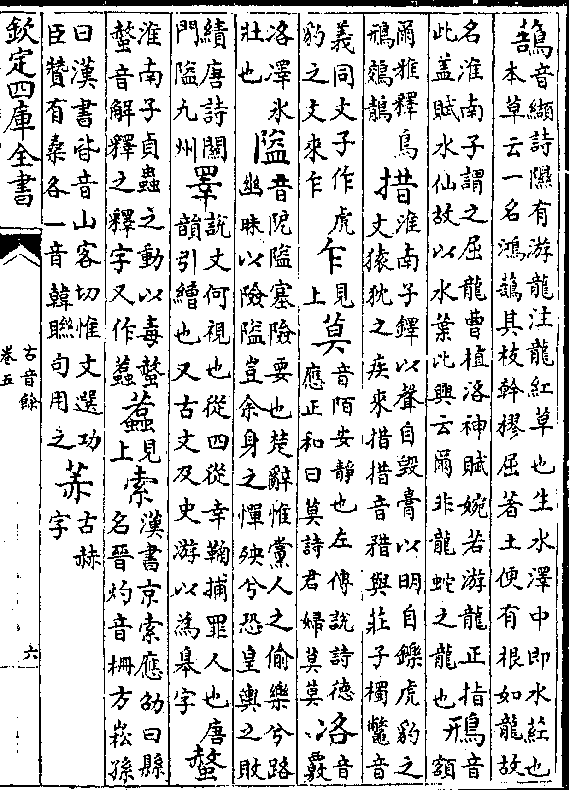 音纈詩隰有游龍注龍紅草也生水澤中即水葒也
本草云一名鴻其枝幹樛屈著土便有根如龍故
名淮南子謂之屈龍曹植洛神賦婉若游龍正指
此蓋賦水仙故以水葉此興云爾非龍蛇之龍也
鳽音額
爾雅釋鳥
鳽鵁鶄
措淮南子鐸以聲自毀膏以明自鑠虎豹之
文猿狖之疾來措措音猎與莊子擉鼈音
義同文子作虎
豹之文來乍
乍見上
莫音陌安靜也左傳說詩德
應正和曰莫詩君婦莫莫
洛音覈
洛澤氷
壯也
隘音阨隘塞險要也楚辭惟黨人之偷樂兮路
幽昧以險隘豈余身之憚殃兮恐皇輿之敗
績唐詩關
門隘九州
睪說文何視也從四從幸鞫捕罪人也唐
韻引繒也又古文及史游以為皋字
螫
淮南子貞蟲之動以毒螫
螫音解釋之釋字又作蠚
蠚見上
索漢書京索應劭曰縣
名晉灼音柵方崧孫
曰漢書皆音山客切惟文選功
臣贊有桑各一音韓聯句用之
古赫字
欽定四庫全書
古音餘
卷五
六